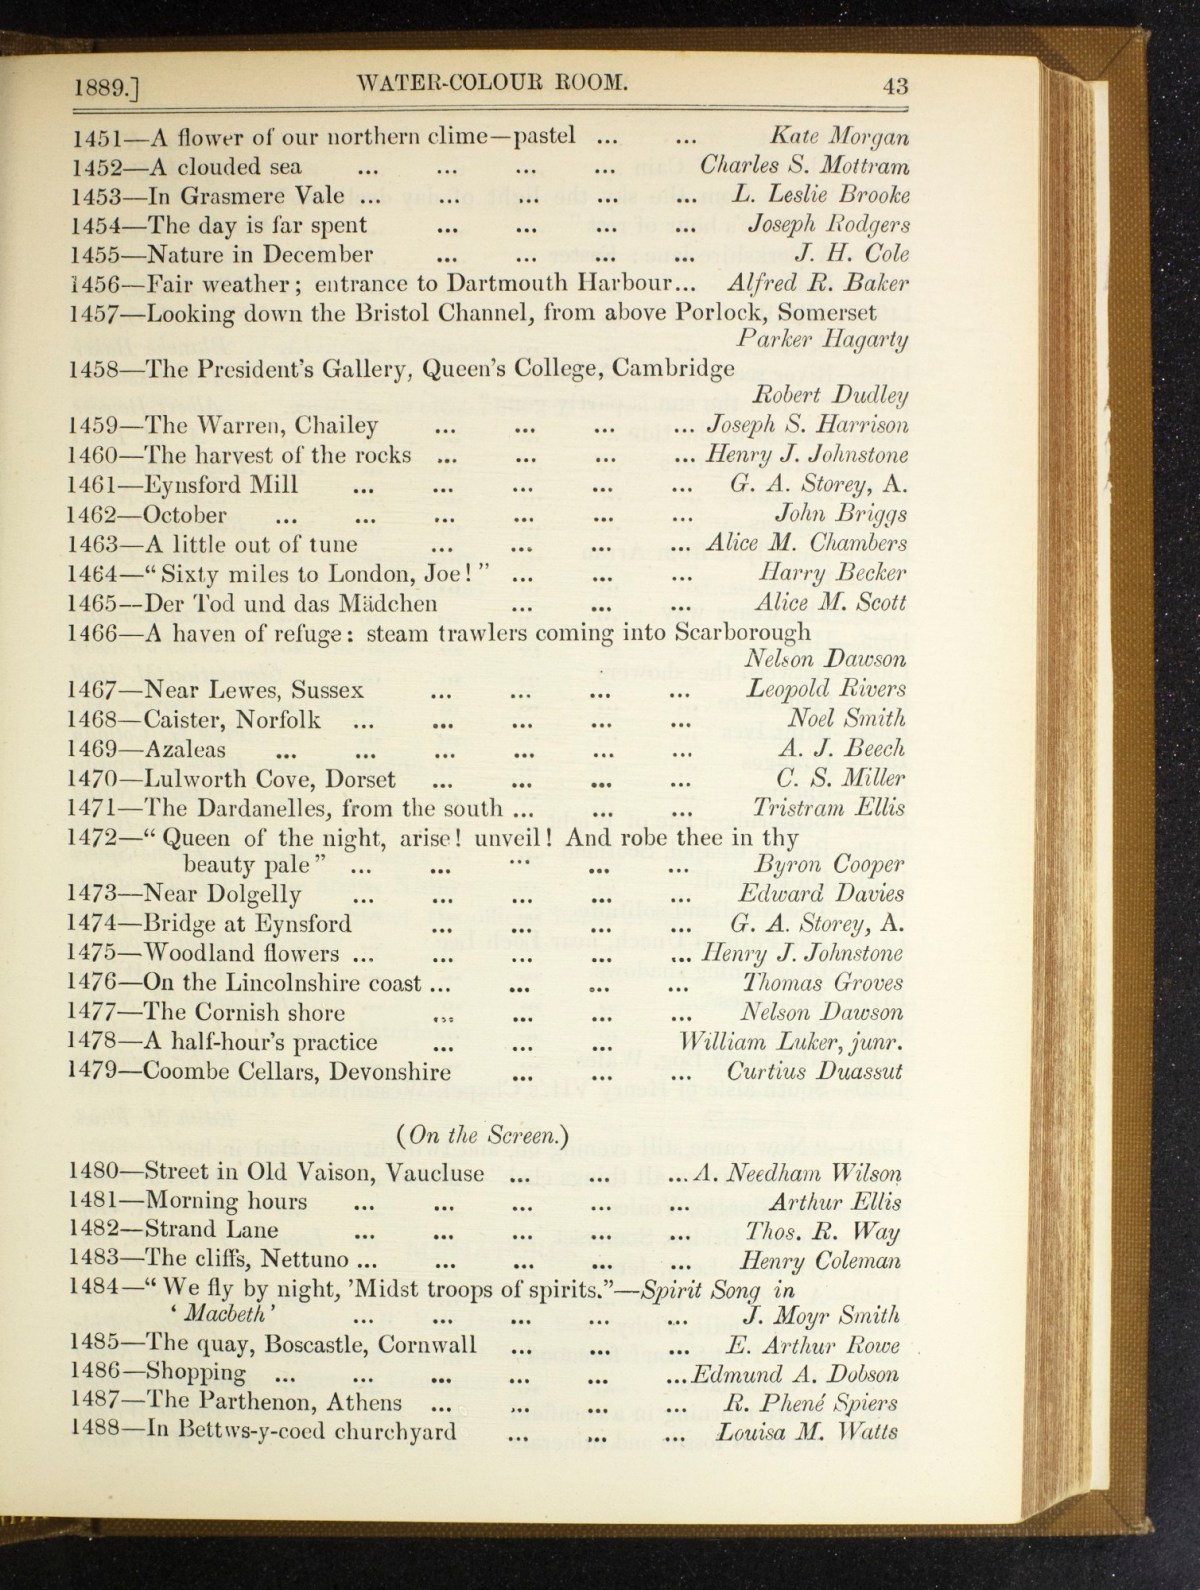 1889.] WATER-COLOUR ROOM. 43
1451—A flower of our northern clime—pastel ... ... Kate Morgan
1452—A clouded sea ... ... ... ... Charles S. Mottram
1453—In Grasmere Vale ... ... ... ... ... L. Leslie Brooke
1454—The day is far spent ... ... ... ... Joseph Rodgers
1455—Nature in December ... ... ... ... J. H. Cole
1456—Fair weather; entrance to Dartmouth Harbour... Alfred R. Baker
1457—Looking down the Bristol Channel, from above Porlock, Somerset
Parker Hagarty
1458—The President's Gallery, Queen's College, Cambridge
Robert Dudley
1459—The Warren, Chailey ... ... ... ... Joseph S. Harrison
1460—The harvest of the rocks ... ... ... ... Henry J. Johnstone
1461—Eynsford Mill ... ... ... ... ... G. A. Storey, A.
1462—October ... ... ... ... ... ... John Briggs
1463—A little out of tune ... ... ... ... Alice M. Chambers
1464—“Sixty miles to London, Joe!” ... ... ... Harry Becker
1465—Der Tod und das Mädchen ... ... ... Alice M. Scott
1466—A haven of refuge: steam trawlers coming into Scarborough
Nelson Dawson
1467—Near Lewes, Sussex ... ... ... ... Leopold Rivers
1468—Caister, Norfolk ... ... ... ... ... Noel Smith
1469—Azaleas ... ... ... ... ... ... A. J. Beech
1470—Lulworth Cove, Dorset ... ... ... ... C. S. Miller
1471—The Dardanelles, from the south ... ... ... Tristram Ellis
1472—“Queen of the night, arise! unveil! And robe thee in thy
beauty pale” ... ... ... ... ... Byron Cooper
1473—Near Dolgelly ... ... ... ... ... Edward Davies
1474—Bridge at Eynsford ... ... ... ... G. A. Storey, A.
1475—Woodland flowers ... ... ... ... ... Henry J. Johnstone
1476—On the Lincolnshire coast ... ... ... ... Thomas Groves
1477—The Cornish shore ... ... ... ... Nelson Dawson
1478—A half-hour's practice ... ... ... William Luker, junr.
1479—Coombe Cellars, Devonshire ... ... ... Curtius Duassut
(On the Screen.)
1480—Street in Old Vaison, Vaucluse ... ... ... A. Needham Wilson
1481—Morning hours ... ... ... ... ... Arthur Ellis
1482—Strand Lane ... ... ... ... ... Thos. R. Way
1483—The cliffs, Nettuno ... ... ... ... ... Henry Coleman
1484—“We fly by night, 'Midst troops of spirits.”—Spirit Song in
‘Macbeth’ ... ... ... ... ... J. Moyr Smith
1485—The quay, Boscastle, Cornwall ... ... ... E. Arthur Rowe
1486—Shopping ... ... ... ... ... ... Edmund A. Dobson
1487—The Parthenon, Athens ... ... ... ... R. Phené Spiers
1488—In Bettws-y-coed churchyard ... ... ... Louisa M. Watts